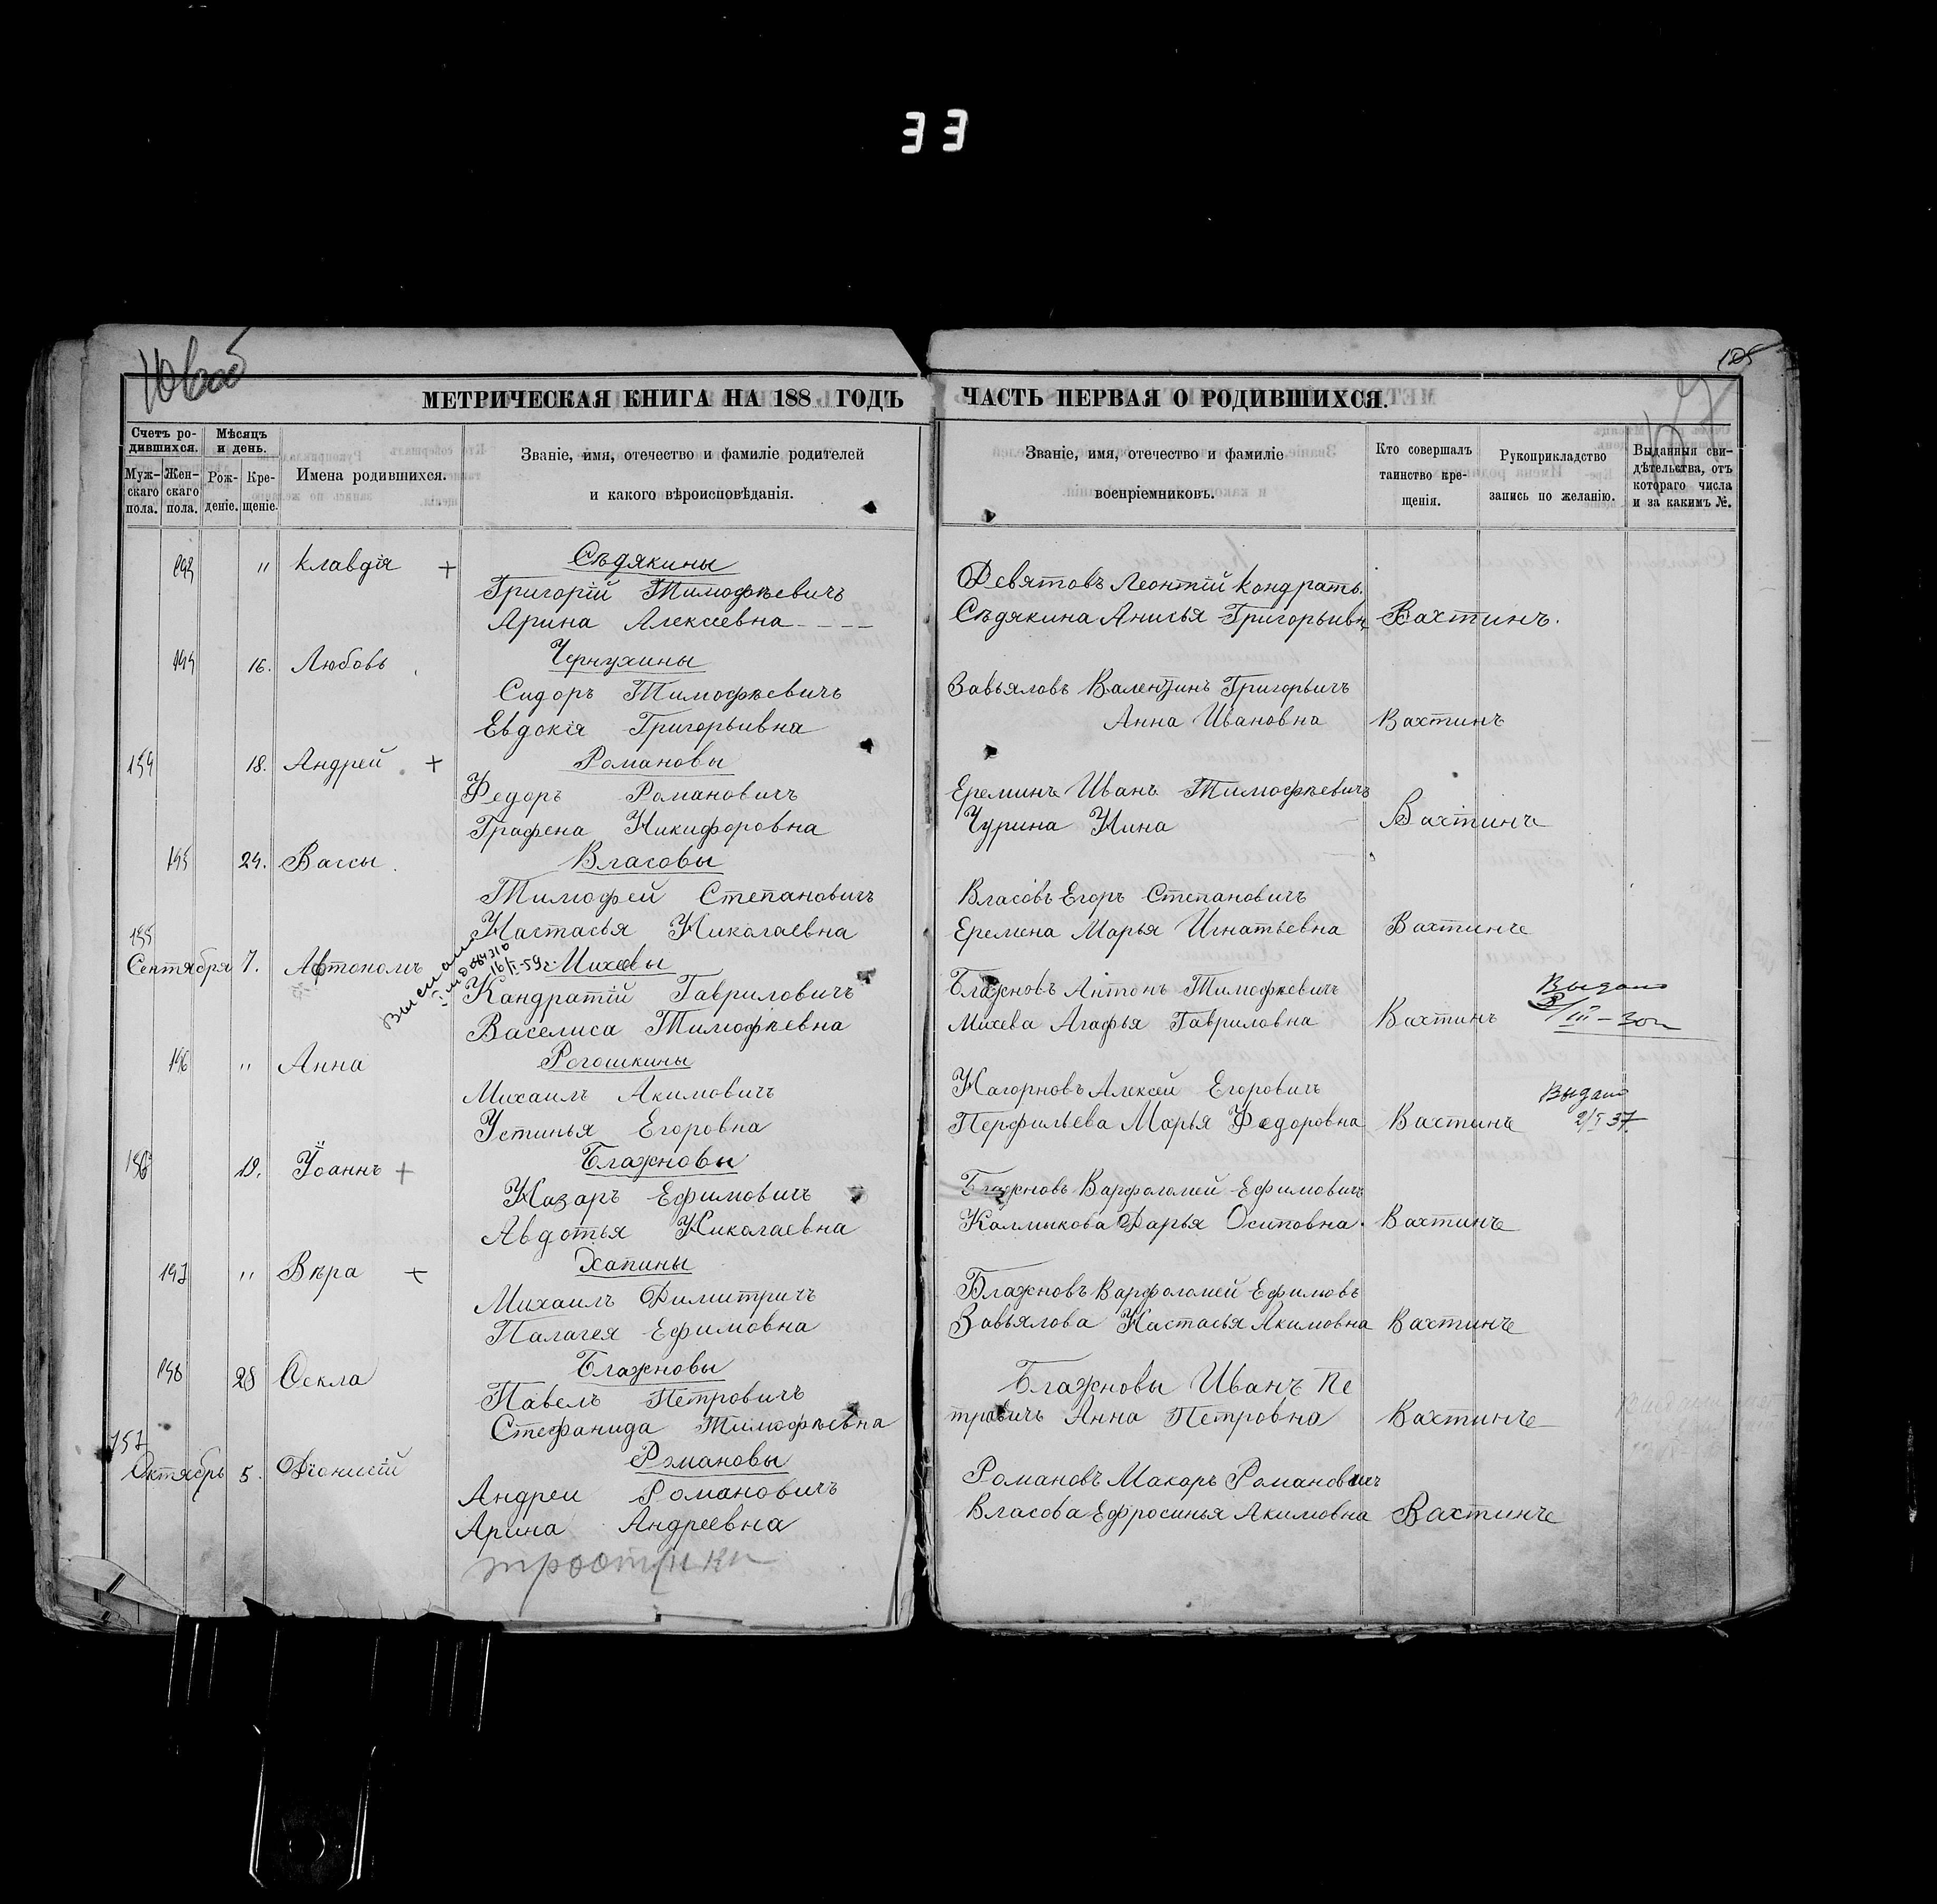 33
125
МЕТРИЧЕСКАЯ КНИГА НА 188 ГОДЪ
ЧАСТЬ ПЕРВАЯ О РОДИВШИХСЯ.
Счетъ ро-
дившихся.
Муж-
скаго
пола.
Жен-
скаго
пола.
Мѣсяцъ
и день.
Рож-
деніе.
Кре-
щеніе.
Имена родившихся.
Званіе, имя, отечество и фамиліе родителей
и какого вѣроисповѣданія.
Званіе, имя, отечество и фамиліе
воспріемниковъ.
Кто совершалъ
таинство кре-
щенія.
Рукоприкладство
запись по желанію.
Выданныя сви-
дѣтельства, отъ
котораго числа
и за какимъ №.
193 " Клавдія + Сѣдякины
Григорій Тимофѣевичъ Девятовъ Леонтій Кондрать.
Арина Алексеевна Сѣдякина Анисья Григорьивн Вахтинъ.
194 16. Любовь Чернухины
Сидоръ Тимофѣевичъ Завьяловъ Валентинъ Григорьичъ
Евдокія Григорьивна Анна Ивановна Вахтинъ
154 18. Андрей + Романовы
Федоръ Романовичъ Ереминъ Иванъ Тимофѣевичъ
Графена Никифоровна Чурина Нина Вахтинъ
195 24. Вассы Власовы
Тимофей Степановичъ Власовъ Егоръ Степановичъ
Настасья Николаевна Еремина Марья Игнатьевна Вахтинъ
155
Сентября 7. Автономъ Михеевы
16/I-59г.
Кандратій Гавриловичъ Блажновъ Антонъ Тимофѣевичъ Выдано
Васелиса Тимофѣевна Михева Агафья Гавриловна Вахтинъ
196 " Анна Рогошкины
Михаилъ Акимовичъ Нагорновъ Алексей Егоровичъ Выдано
Устинья Егоровна Перфильева Марья Федоровна Вахтинъ 2/I 37
156 19. Іоаннъ + Блажновы
Назаръ Ефимовичъ Блажновъ Варфоломей Ефимовичъ
Авдотья Николаевна Калмыкова Дарья Осиповна. Вахтинъ
197 " Вѣра + Хапины
Михаилъ Димитричъ Блажновъ Варфоломей Ефимовъ
Палагея Ефимовна Завьялова Настасья Акимовна Вахтинъ
198 28 Фекла Блажновы
Павелъ Петровичъ Блажновы Иванъ Пе
Стефанида Тимофѣевна тровичъ Анна Петровна Вахтинъ
157
Октябрь 5. Діонисій Романовы
Андреи Романовичъ Романовъ Макаръ Романовичъ
Арина Андреевна Власова Ефросинья Акимовна Вахтинъ